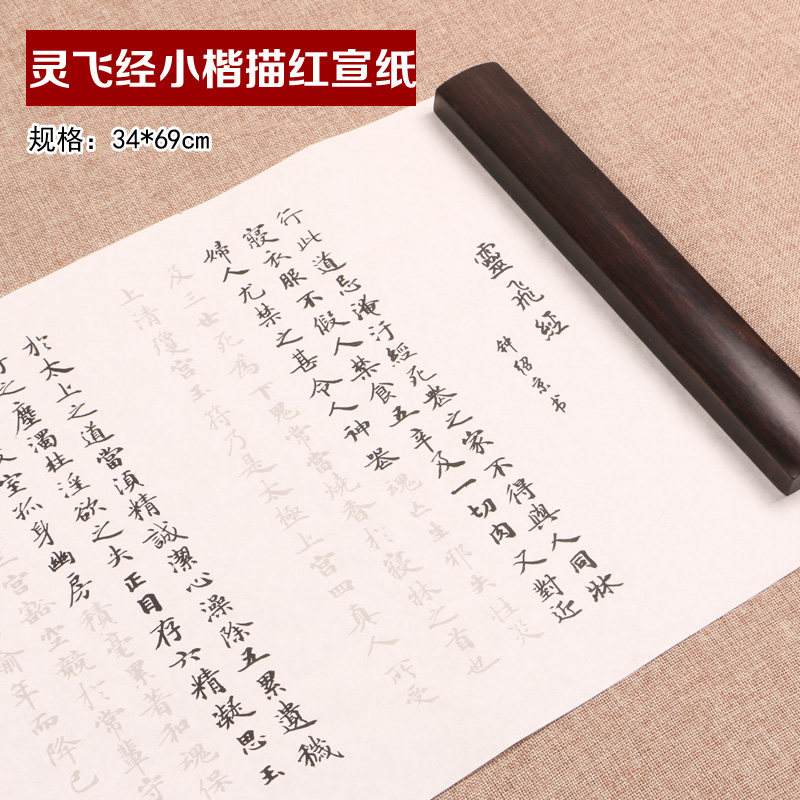 灵飞经小楷描红宣纸
规格：34*69cm
靈飛經
钟绍京书
行此道忌淹汙經死喪之家不得與人同牀
寢衣服不假人禁食五辛及一切肉又對近
婦人尤禁之甚令人神喪魂亡生邪失性災
及三世死為下鬼常當燒香於寢牀之首也
上清瓊宮玉符乃是太極上宮四真人所受
於太上之道當須精誠潔心澡除五累遺穢
汙之塵濁杜淫欲之失正目存六精凝思玉
室孤身幽房積毫累著和魂保
三宮豁空競於常輩守
踰年而降己